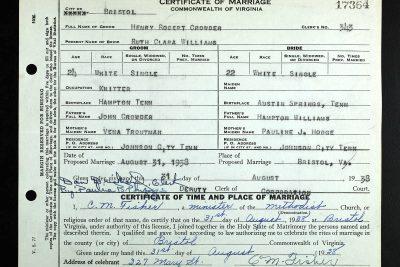 CERTIFICATE OF MARRIAGE
COMMONWEALTH OF VIRGINIA
17364
CITY OR BRISTOL
FULL NAME OF GROOM HENRY ROBERT CROWDER CLERK'S NO. 343
PRESENT NAME OF BRIDE RUTH CLARA WILLIAMS
GROOM BRIDE
AGE RACE SINGLE, WIDOWED, OR DIVORCED NO. TIMES PREV. MARRIED AGE RACE SINGLE, WIDOWED, OR DIVORCED NO. TIMES PREV. MARRIED
24 WHITE SINGLE 22 WHITE SINGLE
OCCUPATION KNITTER MAIDEN NAME
BIRTHPLACE HAMPTON TENN BIRTHPLACE AUSTIN SPRINGS, TENN
FATHER'S NAME JOHN CROWDER FATHER'S NAME HAMPTON WILLIAMS
MOTHER'S MAIDEN NAME VENA TROUTMAN MOTHER'S MAIDEN NAME PAULINE J. HODGE
RESIDENCE P. O. ADDRESS JOHNSON CITY TENN RESIDENCE P. O. ADDRESS JOHNSON CITY TENN
Date of Proposed Marriage AUGUST 31, 1938 Place of Proposed Marriage BRISTOL, VA.
Given 31 day of AUGUST 1938
Clerk
DEPUTY CORPORATION Court
CERTIFICATE OF TIME AND PLACE OF MARRIAGE
I, C. M. Fisher, a minister of the Methodist
(Denomination)
religious order of that name, do certify that on the 31st day of August, 1938 at Bristol
Virginia, under authority of this license, I joined together in the Holy State of Matrimony the persons named and
described therein. I qualified and gave bond according to law authorizing me to celebrate the rites of marriage in
the county (or city) of Bristol Commonwealth of Virginia.
Given under my hand this 31st day of August 1938
Address of celebrant 327 Mary St. C M Fisher
MARGIN RESERVED FOR BINDING
V. S. 7?